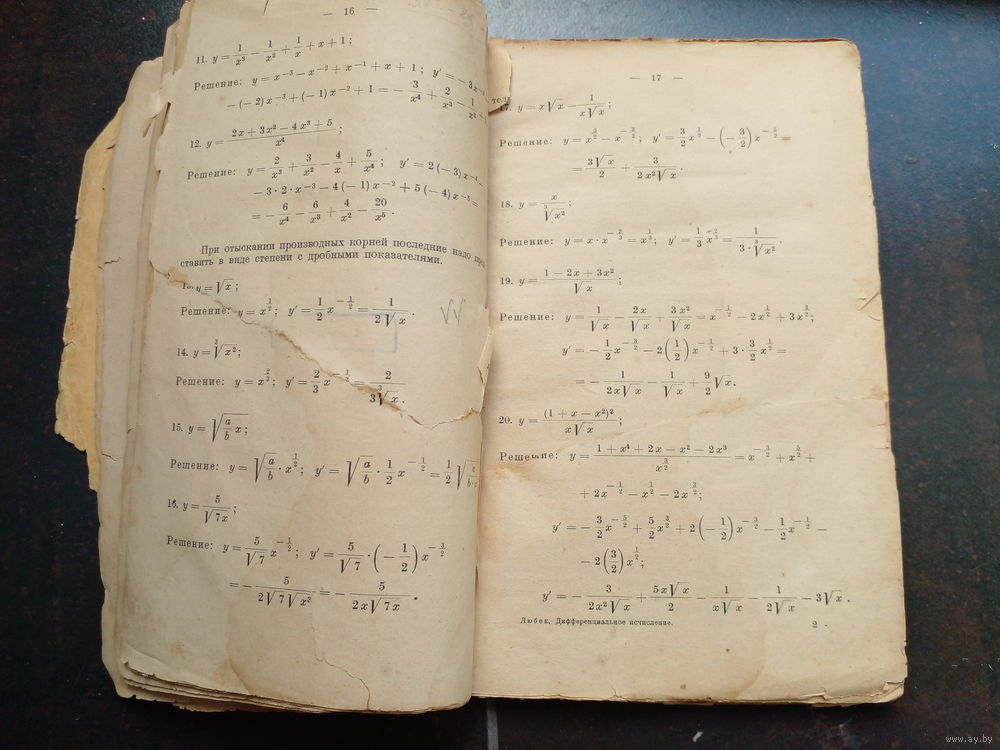 — 16 —
11. y = 1/x³ − 1/x² + 1/x + x + 1;
Решение: y = x⁻³ − x⁻² + x⁻¹ + x + 1; y′ = − 3x⁻⁴ −
− (− 2) x⁻³ + (− 1) x⁻² + 1 = − 3/x⁴ + 2/x³ − 1/x² +
12. y = (2x + 3x² − 4x³ + 5)/x⁴;
Решение: y = 2/x³ + 3/x² − 4/x + 5/x⁴; y′ = 2 (− 3) x⁻⁴ −
− 3 · 2 · x⁻³ − 4 (− 1) x⁻² + 5 (− 4) x⁻⁵ =
= − 6/x⁴ − 6/x³ + 4/x² − 20/x⁵.
При отыскании производных корней последние надо
ставить в виде степени с дробными показателями.
13. y = √x;
Решение: y = x^(1/2); y′ = 1/2 x^(−1/2) = 1/(2√x).
14. y = ³√x²;
Решение: y = x^(2/3); y′ = 2/3 x^(−1/2) = 2/(3 ³√x).
15. y = √(a/b x);
Решение: y = √(a/b) · x^(1/2); y′ = √(a/b) · 1/2 x^(−1/2) = 1/2 √(a/(b·x))
16. y = 5/√(7x);
Решение: y = 5/√7 x^(−1/2); y′ = 5/√7 · (− 1/2) x^(−3/2)
= − 5/(2√7 √x³) = − 5/(2x√(7x)).
— 17 —
17. y = x√x − 1/(x√x);
Решение: y = x^(3/2) − x^(−3/2); y′ = 3/2 x^(1/2) − (− 3/2) x^(−5/2) =
= 3√x/2 + 3/(2x²√x).
18. y = x/³√x²;
Решение: y = x · x^(−2/3) = x^(1/3); y′ = 1/3 x^(−2/3) = 1/(3 · ³√x²).
19. y = (1 − 2x + 3x²)/√x;
Решение: y = 1/√x − 2x/√x + 3x²/√x = x^(−1/2) − 2x^(1/2) + 3x^(3/2);
y′ = − 1/2 x^(−3/2) − 2 (1/2) x^(−1/2) + 3 · 3/2 x^(1/2) =
= − 1/(2x√x) − 1/√x + 9/2 √x.
20. y = (1 + x − x²)²/(x√x);
Решение: y = (1 + x⁴ + 2x − x² − 2x³)/x^(3/2) = x^(−3/2) + x^(5/2) +
+ 2x^(−1/2) − x^(1/2) − 2x^(3/2);
y′ = − 3/2 x^(−5/2) + 5/2 x^(3/2) + 2 (− 1/2) x^(−3/2) − 1/2 x^(−1/2) −
− 2 (3/2) x^(1/2);
y′ = − 3/(2x²√x) + 5x√x/2 − 1/(x√x) − 1/(2√x) − 3√x.
Любек, Дифференциальное исчисление. 2
www.ay.by